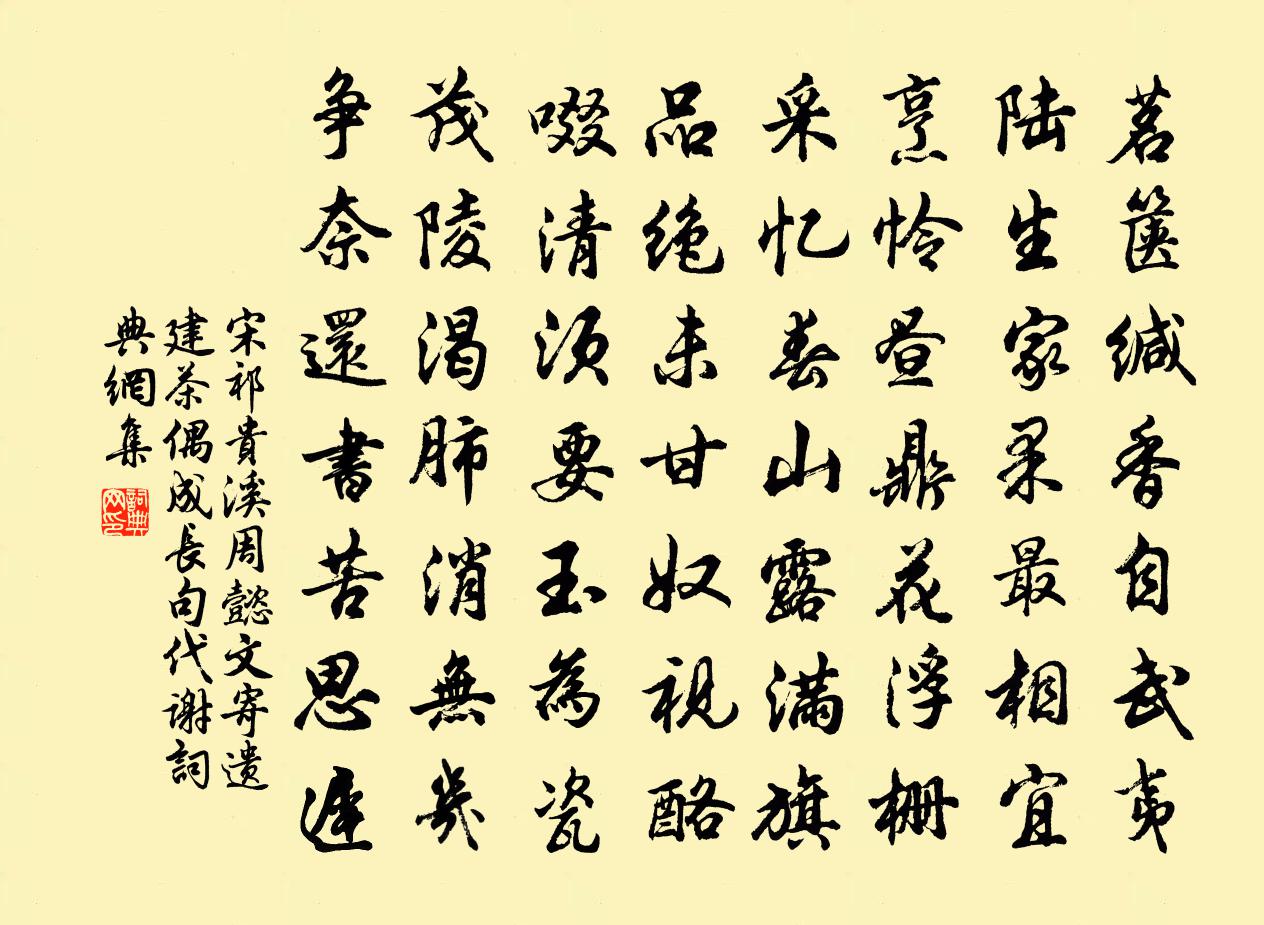 茗箧缄香自武夷
陆生家果最相宜
烹怜昼鼎花浮栅
采忆春山露满旗
品绝未甘奴视酪
啜清须要玉为瓷
茂陵渴肺消無幾
争奈還書苦思遲
宋祁貴溪周懿文寄遗
建茶偶成長句代谢詞
典網集
詞典网印